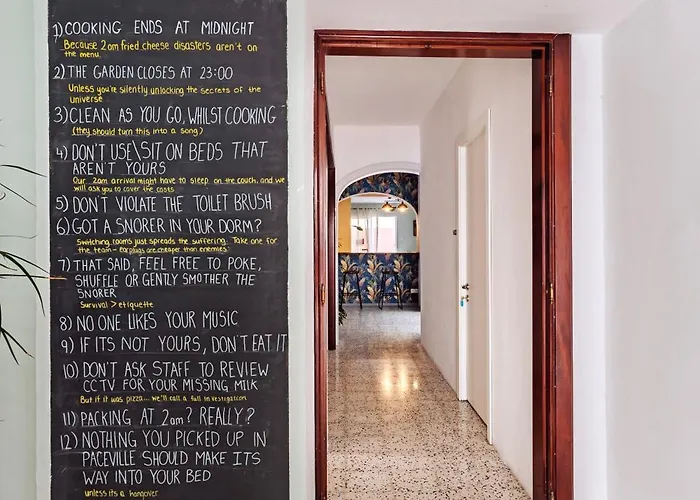 1) COOKING ENDS AT MIDNIGHT
Because 2am fried cheese disasters aren't on
the menu.
2) THE GARDEN CLOSES AT 23:00
Unless you're silently unlocking the secrets of the
universe
3) CLEAN AS YOU GO, WHILST COOKING
(they should turn this into a song)
4) DON'T USE\SIT ON BEDS THAT
AREN'T YOURS
Our 2am arrival might have to sleep on the couch, and we
will ask you to cover the costs
5) DON'T VIOLATE THE TOILET BRUSH
6) GOT A SNORER IN YOUR DORM?
Switching rooms just spreads the suffering. Take one for
the team - earplugs are cheaper than enemies.
7) THAT SAID, FEEL FREE TO POKE,
SHUFFLE OR GENTLY SMOTHER THE
SNORER
Survival > etiquette
8) NO ONE LIKES YOUR MUSIC
9) IF ITS NOT YOURS, DON'T EAT IT
10) DON'T ASK STAFF TO REVIEW
CCTV FOR YOUR MISSING MILK
But if it was pizza... we'll call a full investigation
11) PACKING AT 2am? REALLY?
12) NOTHING YOU PICKED UP IN
PACEVILLE SHOULD MAKE ITS
WAY INTO YOUR BED
unless its a hangover